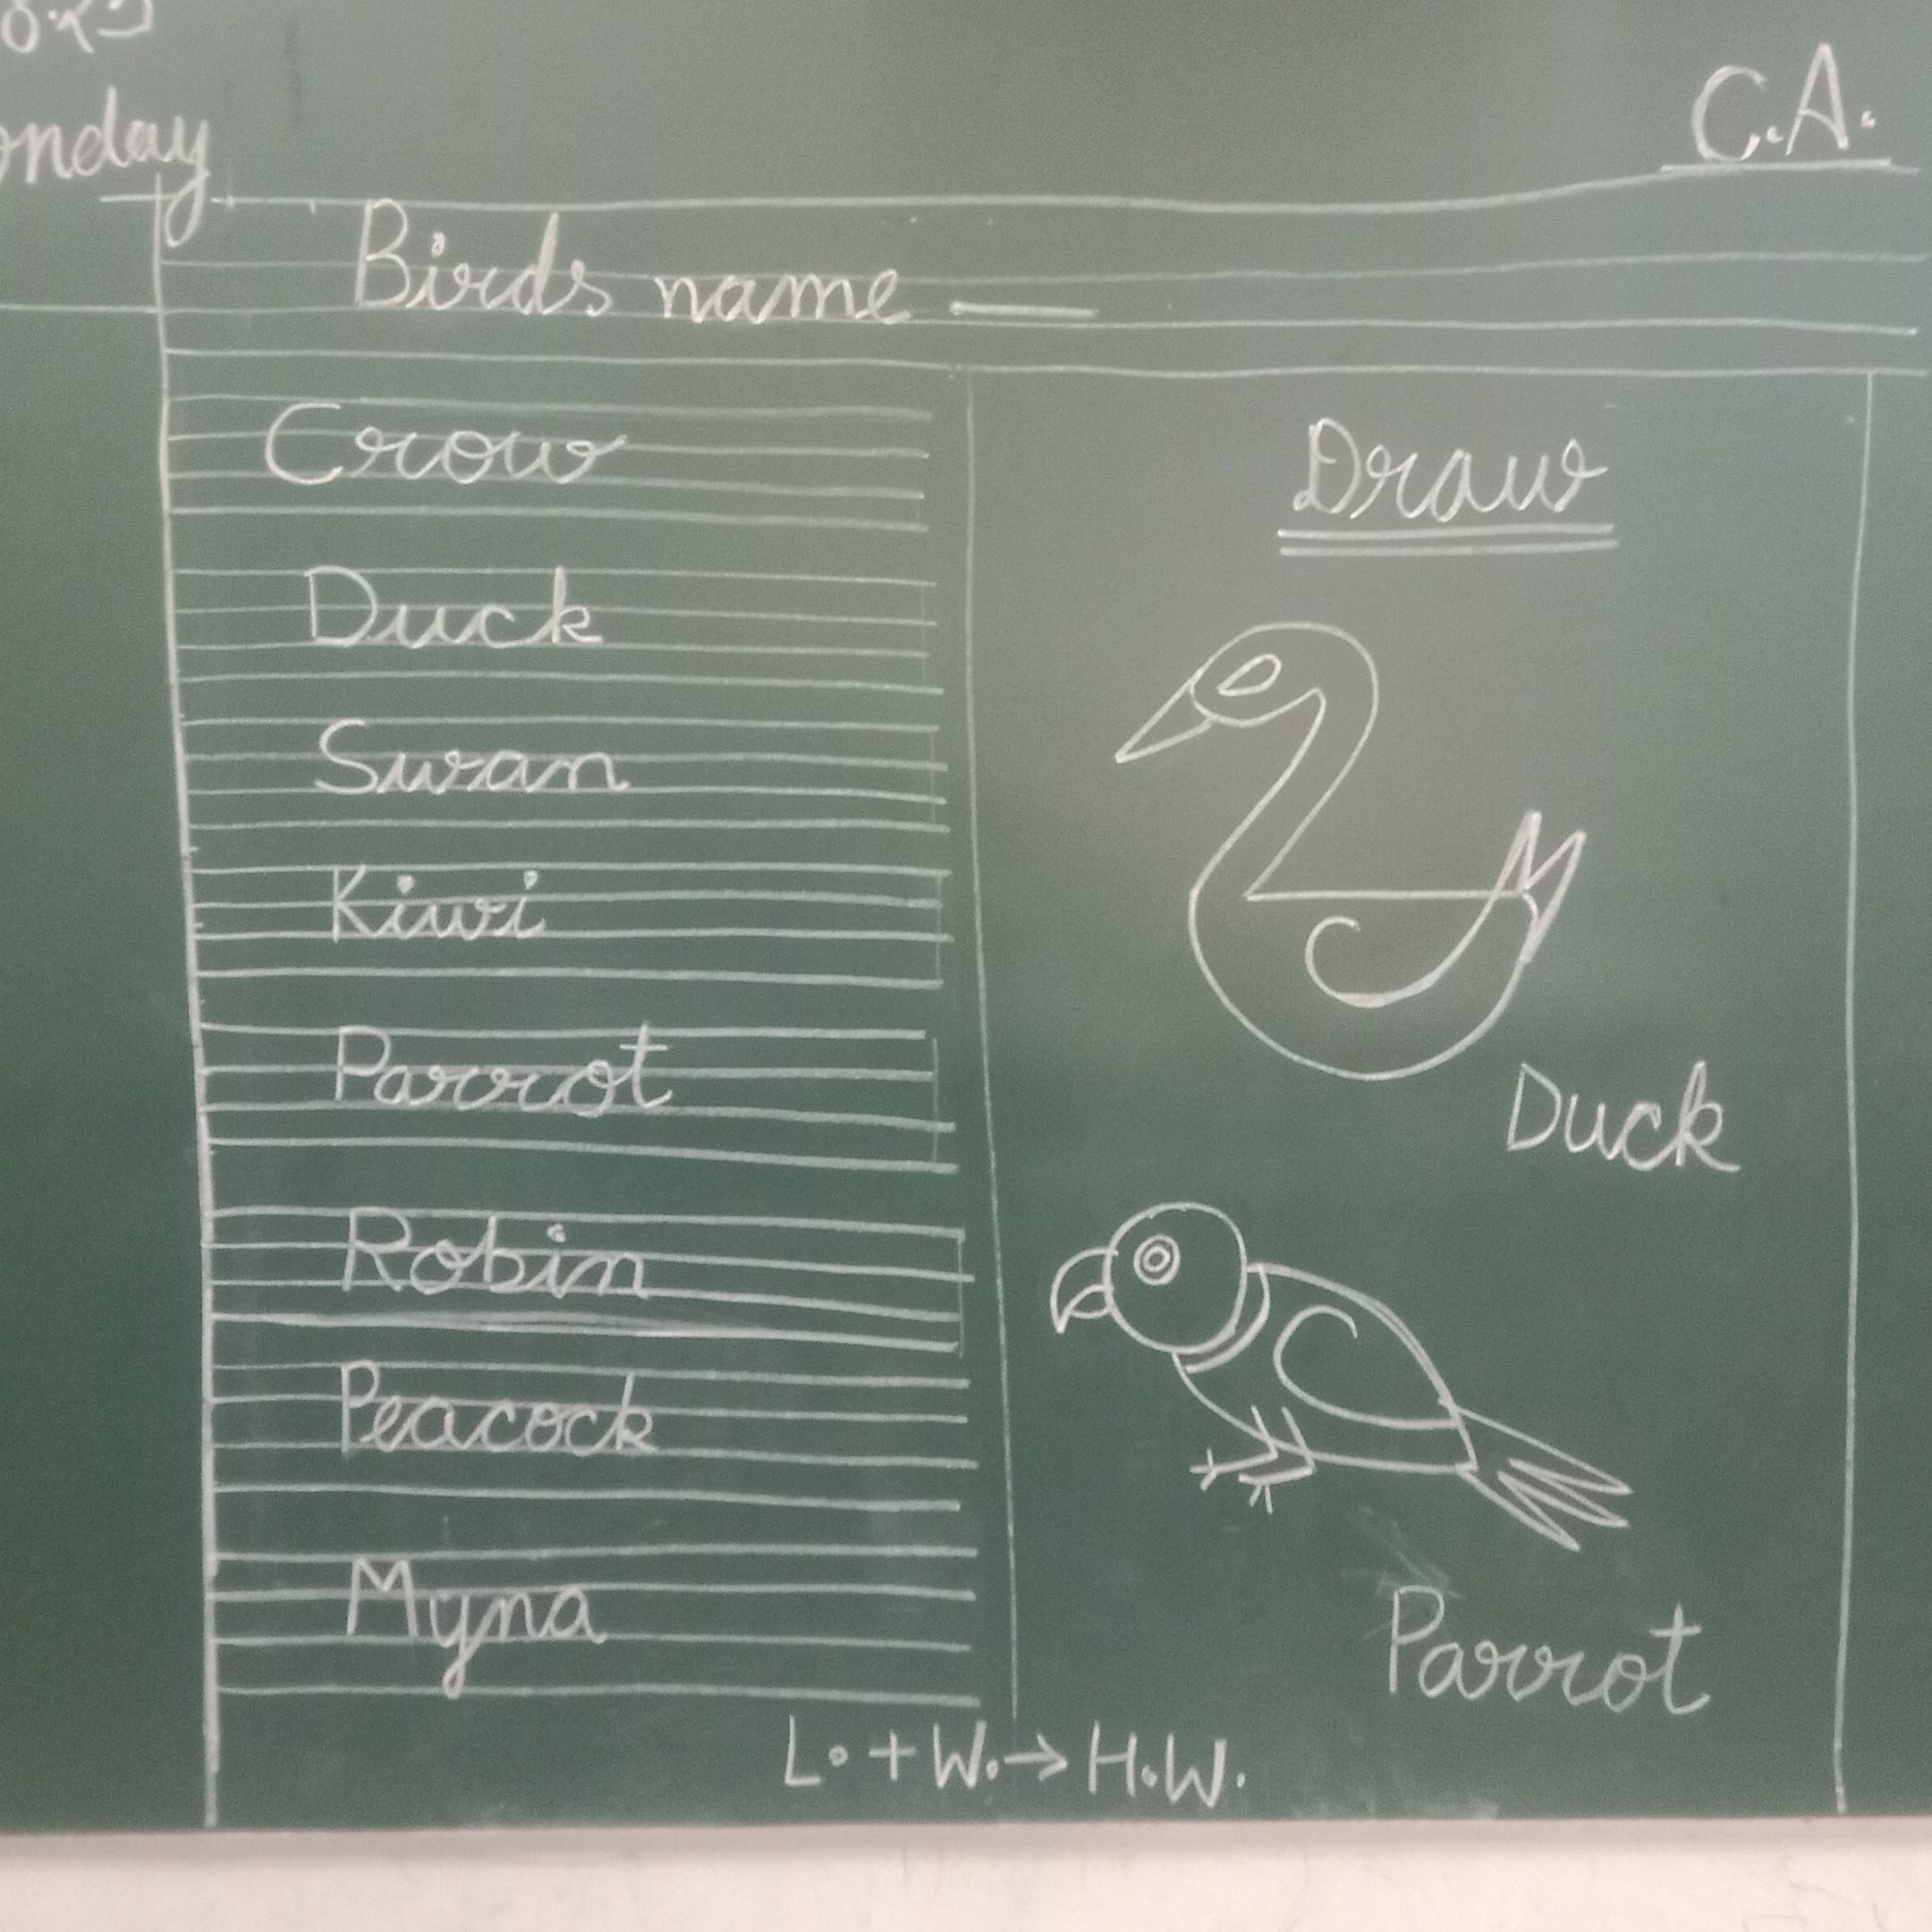 C.A.
Birds name —
Crow
Duck
Swan
Kiwi
Parrot
Robin
Peacock
Myna
Draw
Duck
Parrot
L. + W. → H.W.